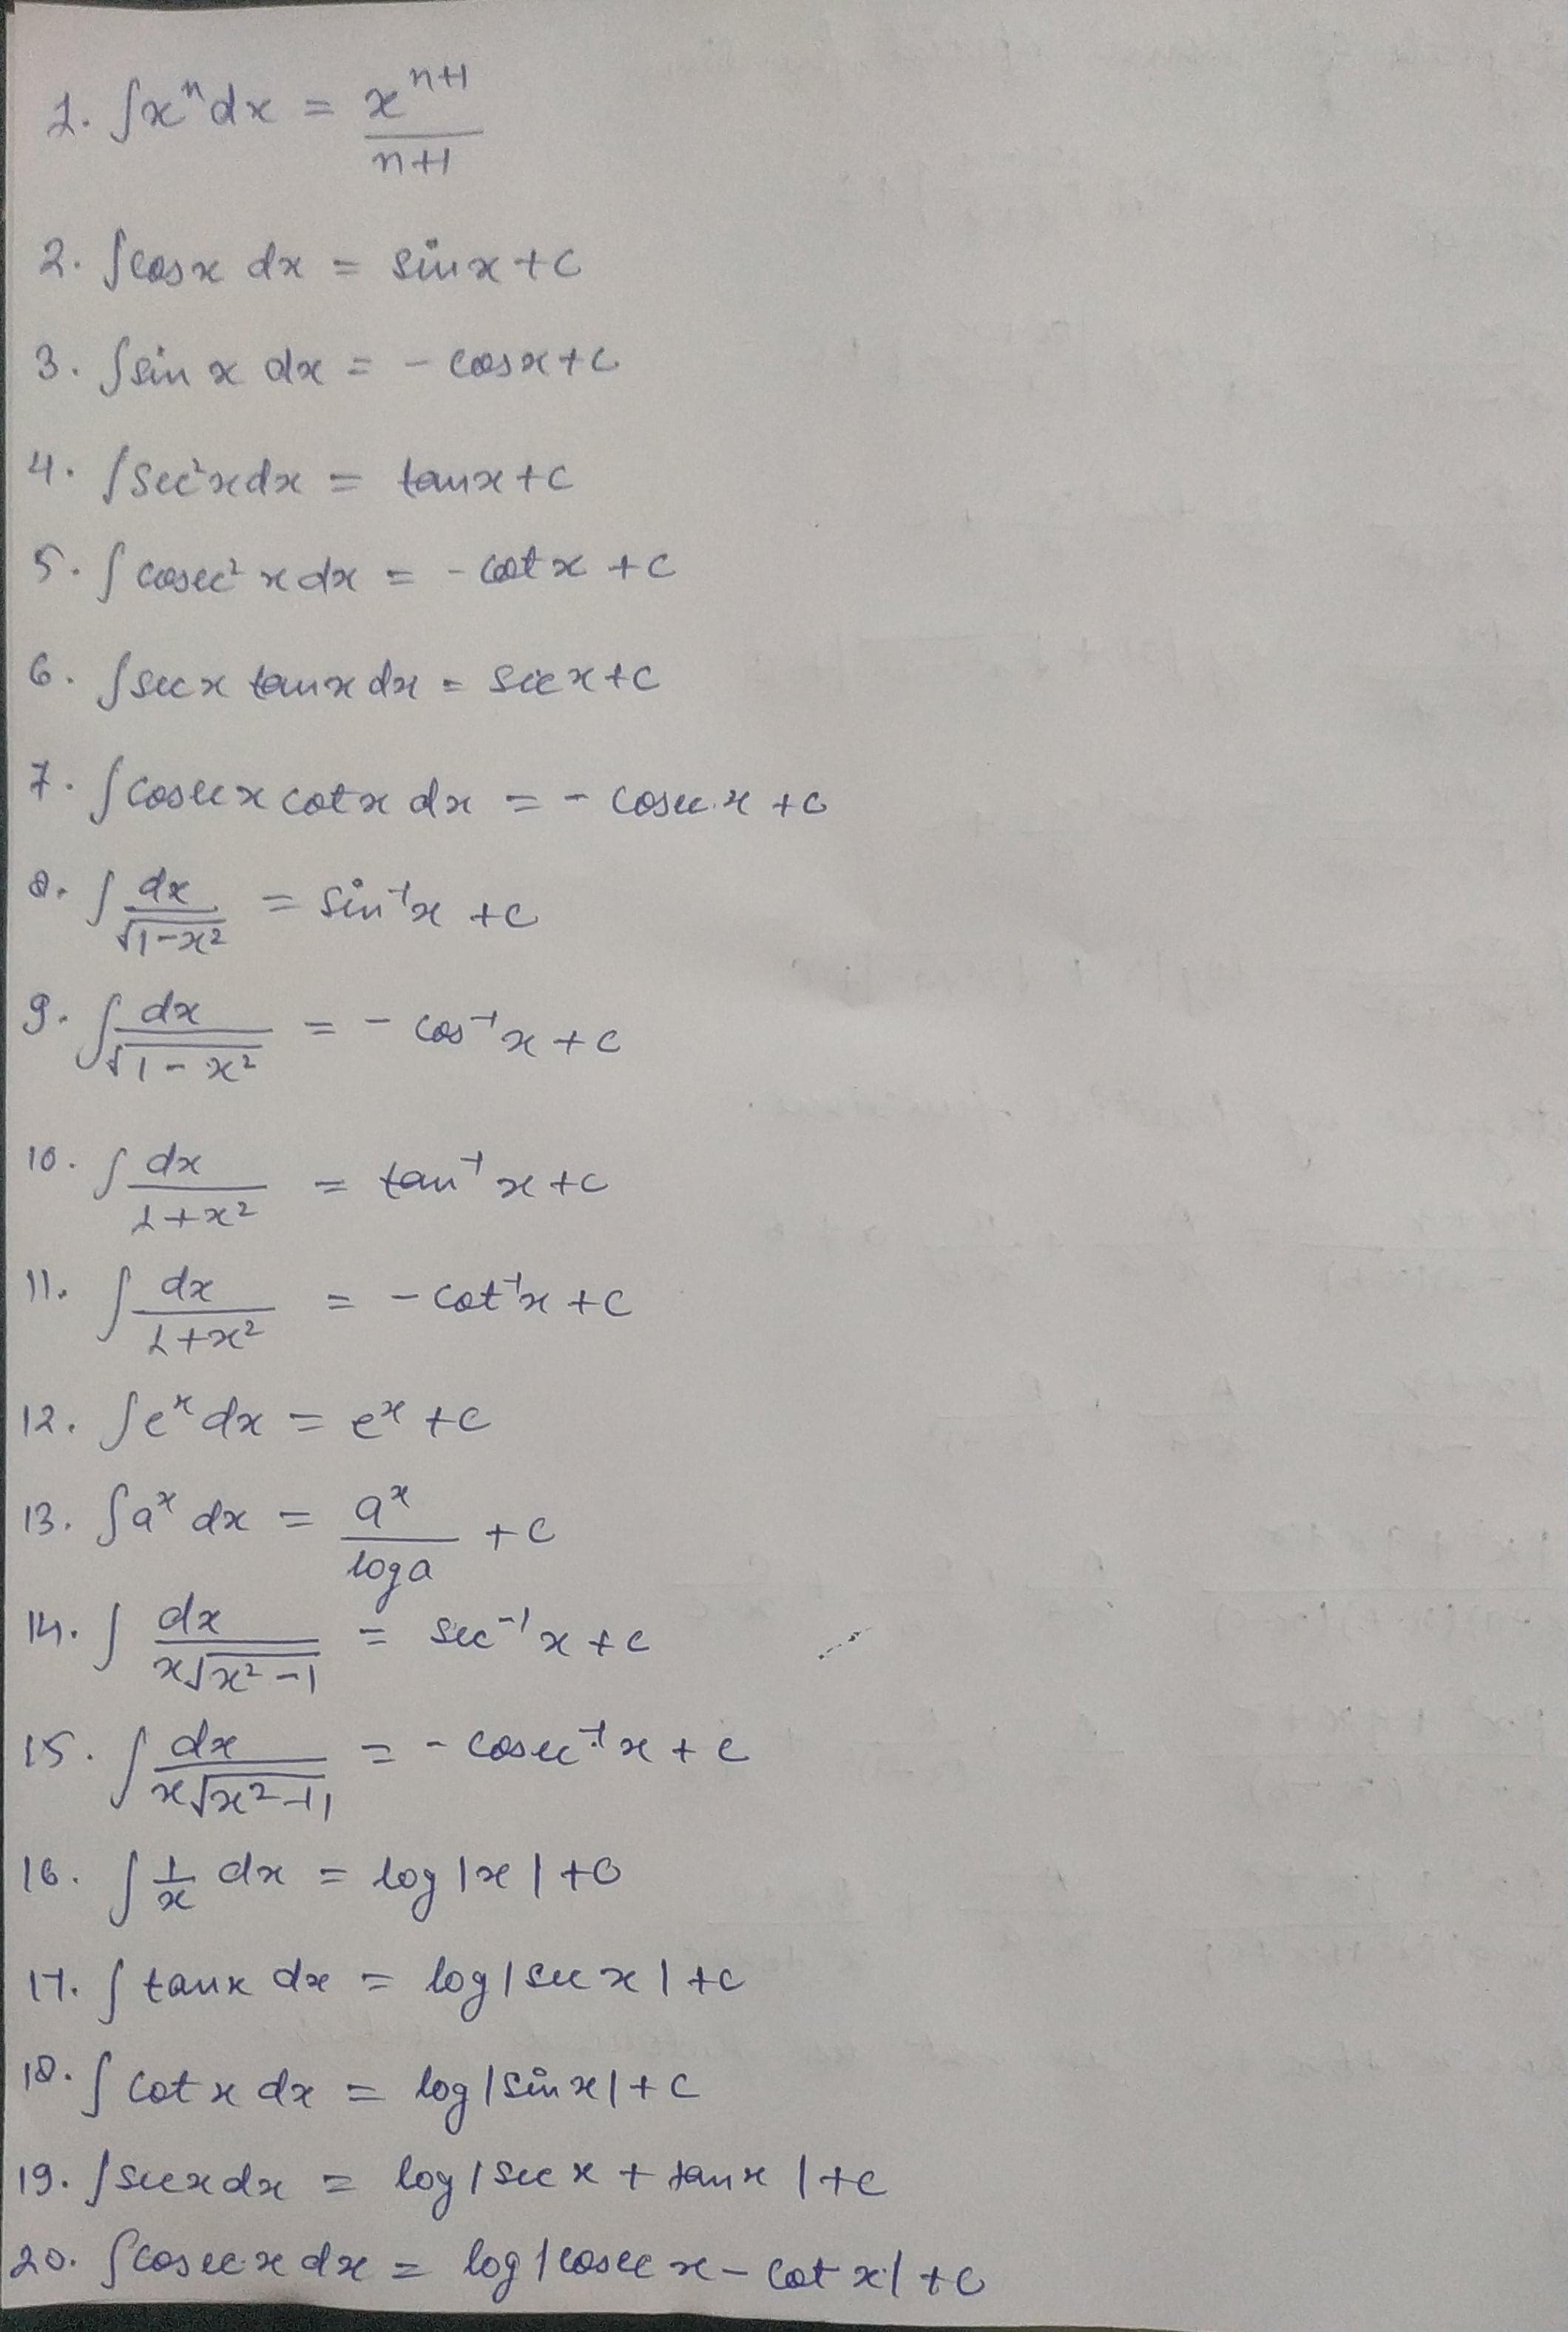 1. ∫xⁿdx = xⁿ⁺¹/n+1
2. ∫cosx dx = sinx+c
3. ∫sin x dx = - cosx+c
4. ∫sec²xdx = tanx+c
5. ∫cosec² x dx = - cot x +c
6. ∫secx tanx dx = secx+c
7. ∫cosecx cotx dx = - cosec x +c
8. ∫dx/√1-x² = sin⁻¹x +c
9. ∫dx/√1-x² = - cos⁻¹x +c
10. ∫dx/1+x² = tan⁻¹ x+c
11. ∫dx/1+x² = - cot⁻¹x +c
12. ∫eˣdx = eˣ +c
13. ∫aˣ dx = aˣ/loga +c
14. ∫dx/x√x²-1 = sec⁻¹x +c
15. ∫dx/x√x²-1 = - cosec⁻¹x +c
16. ∫1/x dx = log|x|+c
17. ∫tanx dx = log|secx|+c
18. ∫cotx dx = log|sinx|+c
19. ∫secxdx = log|secx + tanx|+c
20. ∫cosecx dx = log|cosec x - cot x|+c